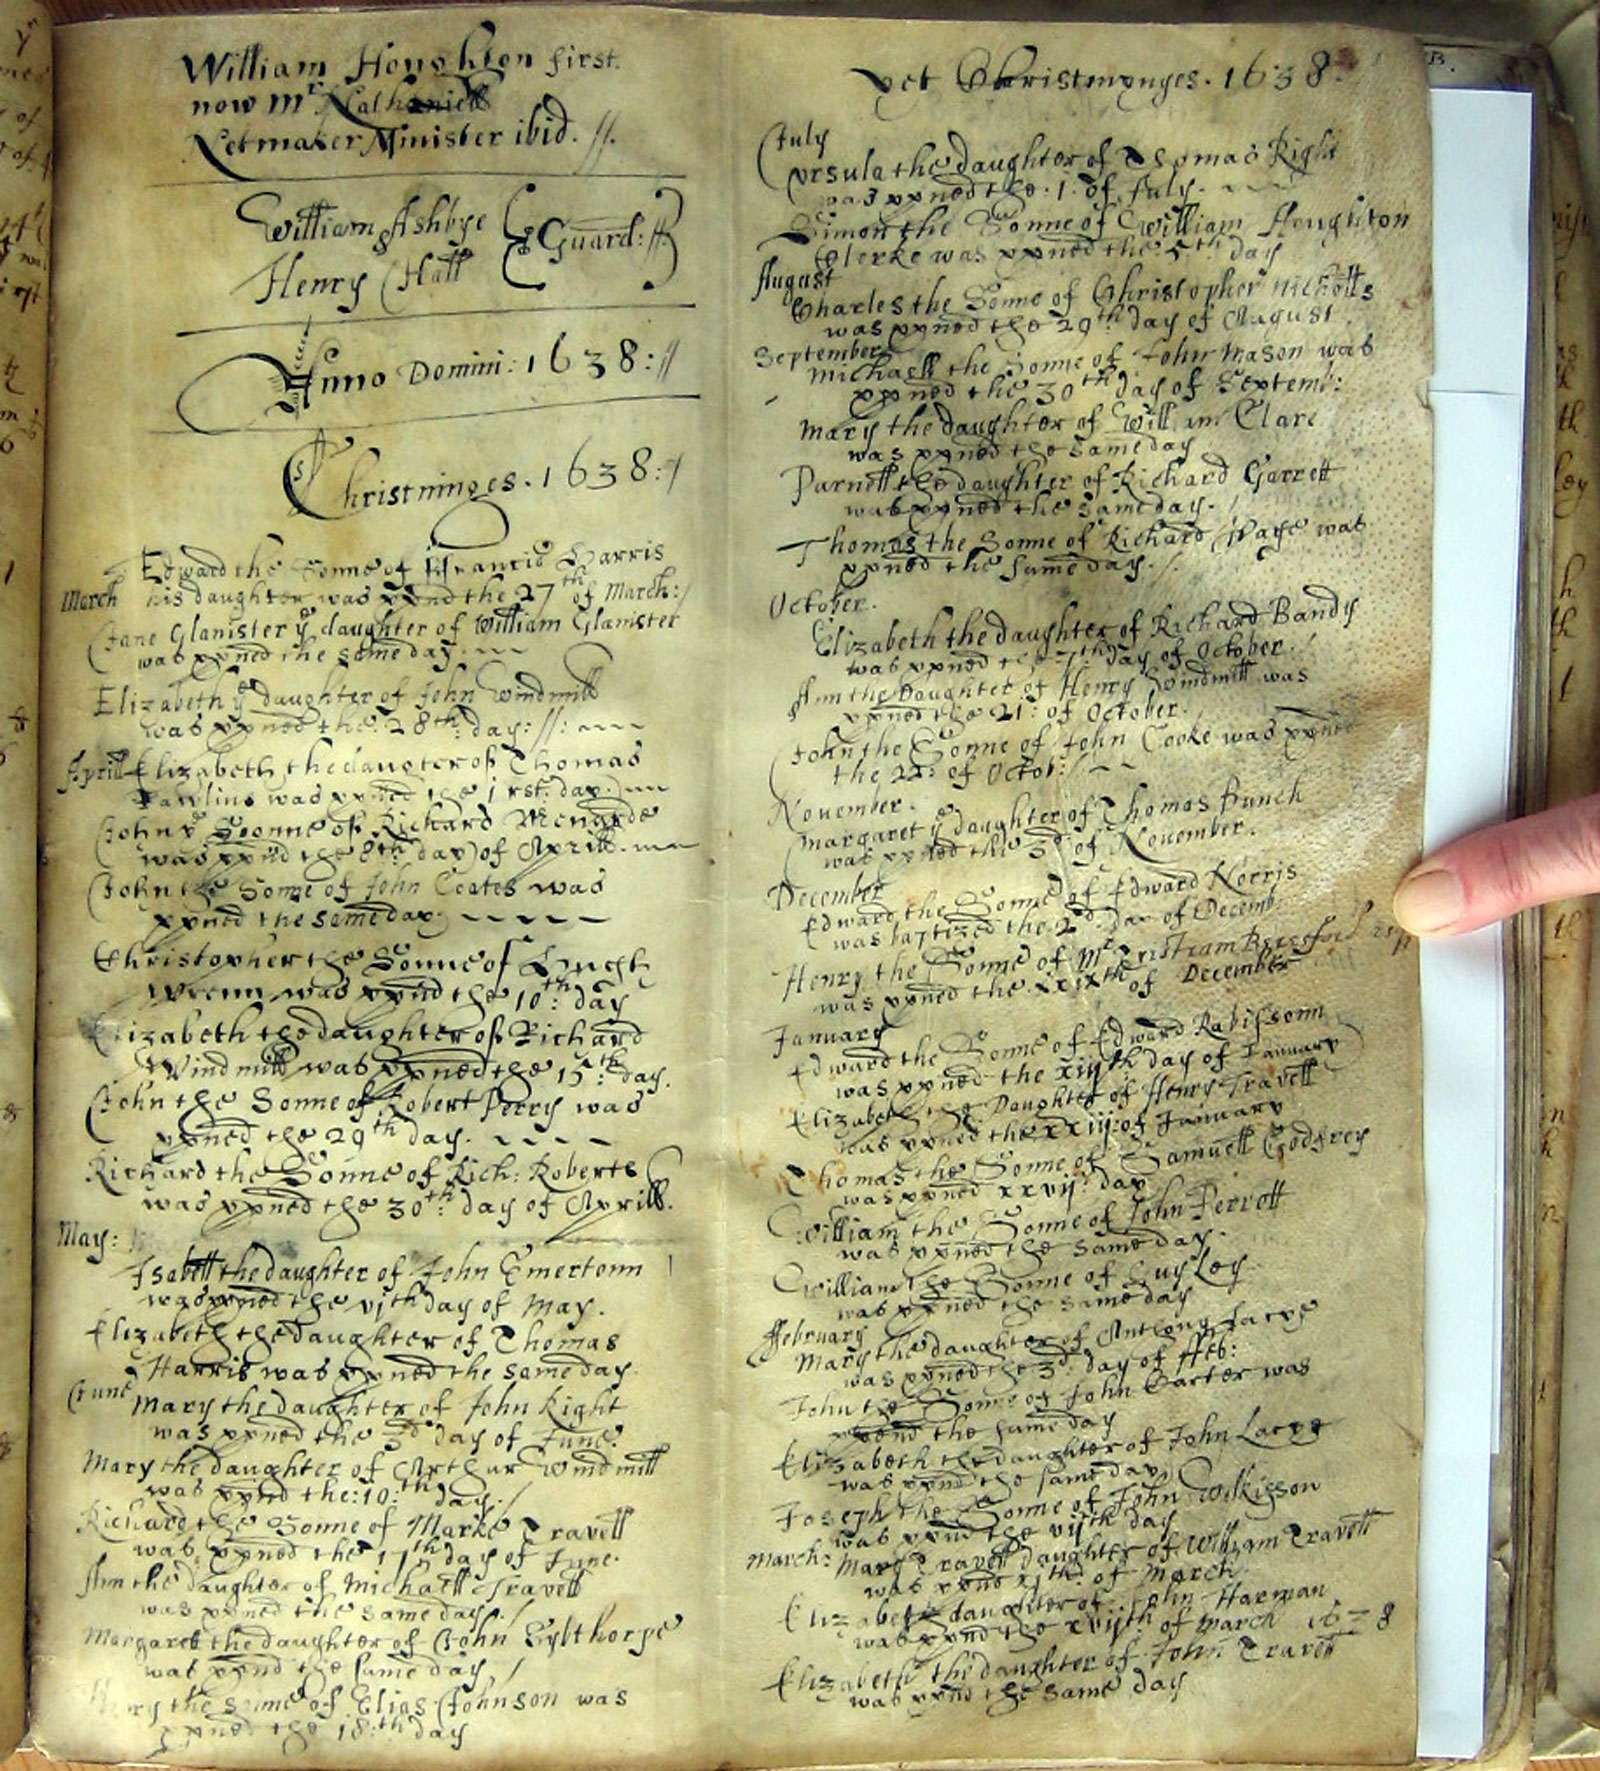 William Houghton first.
now mr Nathaniell
Netmaker Minister ibid. //.
William Ashbye
Guard:
Henry Hall
Anno Domini: 1638://
Christninges. 1638:/
Edward the Sonne of ffrancis Harris
March his daughter was xpned the 27th of March:/
Jane Glanister ye daughter of William Glanister
was xpned the same day.
Elizabeth ye daughter of John Windmill
was xpned the 28th: day://:
Aprill Elizabeth the daugter of Thomas
Rawlins was xpned the 1 rst: day:
John ye Sonne of Richard
was xpnd the 8th day of Aprill.
John the Sonne of John Coates was
xpned the same day.
Christopher the Sonne of
Wrenn was xpnd the 10th: day
Elizabeth the daughter of Richard
Windmill was xpned the 15:th day.
John the Sonne of Robert Perry was
xpned the 29th day.
Richard the Sonne of Rich: Roberts
was xpned the 30th: day of Aprill.
May:
Isabell the daughter of John Emertonn
was xpned the vjth day of May.
Elizabeth the daughter of Thomas
Harris was xpned the same day.
June Mary the daughter of John Right
was xpned the 3d day of June.
Mary the daughter of Arthur Windmill
was xpnd the:10:th day./
Richard the Sonne of Marke Travell
was xpned the 17th day of June.
Ann the daughter of Michaell Travell
was xpned the same day./
Margaret the daughter of John
was xpnd the same day /
the sonne of Elias Johnson was
xpned the 18:th day
yet Christnynges. 1638
July
Ursula the daughter of Thomas Right
was xpned the .1. of July.
Simon the Sonne of William Houghton
Clerke was xpned the 5th day
August
Charles the Sonne of Christopher Nicholls
was xpned the 29th day of August.
September
Michaell the Sonne of John Mason was
xpned the 30th day of Septemb:
Mary the daughter of William Clare
was xpned the same day
Parnell the daughter of Richard Garrett
was xpned the same day.
Thomas the Sonne of Richard was
xpned the same day.
October.
Elizabeth the daughter of Richard Bandy
was xpned the 7th day of October.
Ann the Daughter of Henry Windmill was
xpned the 21: of October.
John the Sonne of John Cooke was xpned
the 22: of Octob:
November.
Margaret ye daughter of Thomas Bunch
was xpned the 3d of November.
December
Edward the Sonne of Edward Norris
was baptized the 2d. day of Decemb
Henry the Sonne of Mr Tristram Beresford
was xpned the xxixth of December
January
Edward the Sonne of Edward Rabissonn
was xpned the xiijth day of January
Elizabeth the Daughter of Henry Travell
was xpned the xxiij: of January
Thomas the Sonne of Samuell Godfrey
was xpned xxvij: day
William the Sonne of John Perrott
was xpned the same day.
William the Sonne of Guy Ley
was xpned the same day
ffebruary
Mary the daughter of Anthony Lacye
was xpned the 3d. day of ffeb:
John the Sonne of John Carter was
xpend the same day
Elizabeth the daughter of John Lacye
was xpnd the same day
Joseph the Sonne of John Wilkisson
was xpnd the vijth day
March: Mary Travell daughter of William Travell
was xpnd xjth: of March.
Elizabeth daughter of John Harman
was xpnd the xvijth of March 1638
Elizabeth the daughter of John Travell
was xpnd the same day